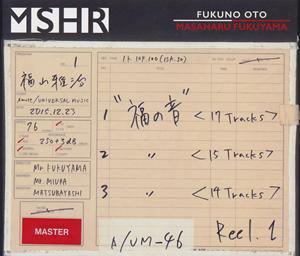 MSHR
FUKUNO OTO
MASAHARU FUKUYAMA
1
福山雅治
Amuse/UNIVERSAL MUSIC
2015.12.23
76
250+3dB
Mr. FUKUYAMA
Mr. MIURA
MATSUBAYASHI
MASTER
1 "福の音" <17 Tracks>
2 〃 <15 Tracks>
3 〃 <14 Tracks>
A/UM-46
Reel.1